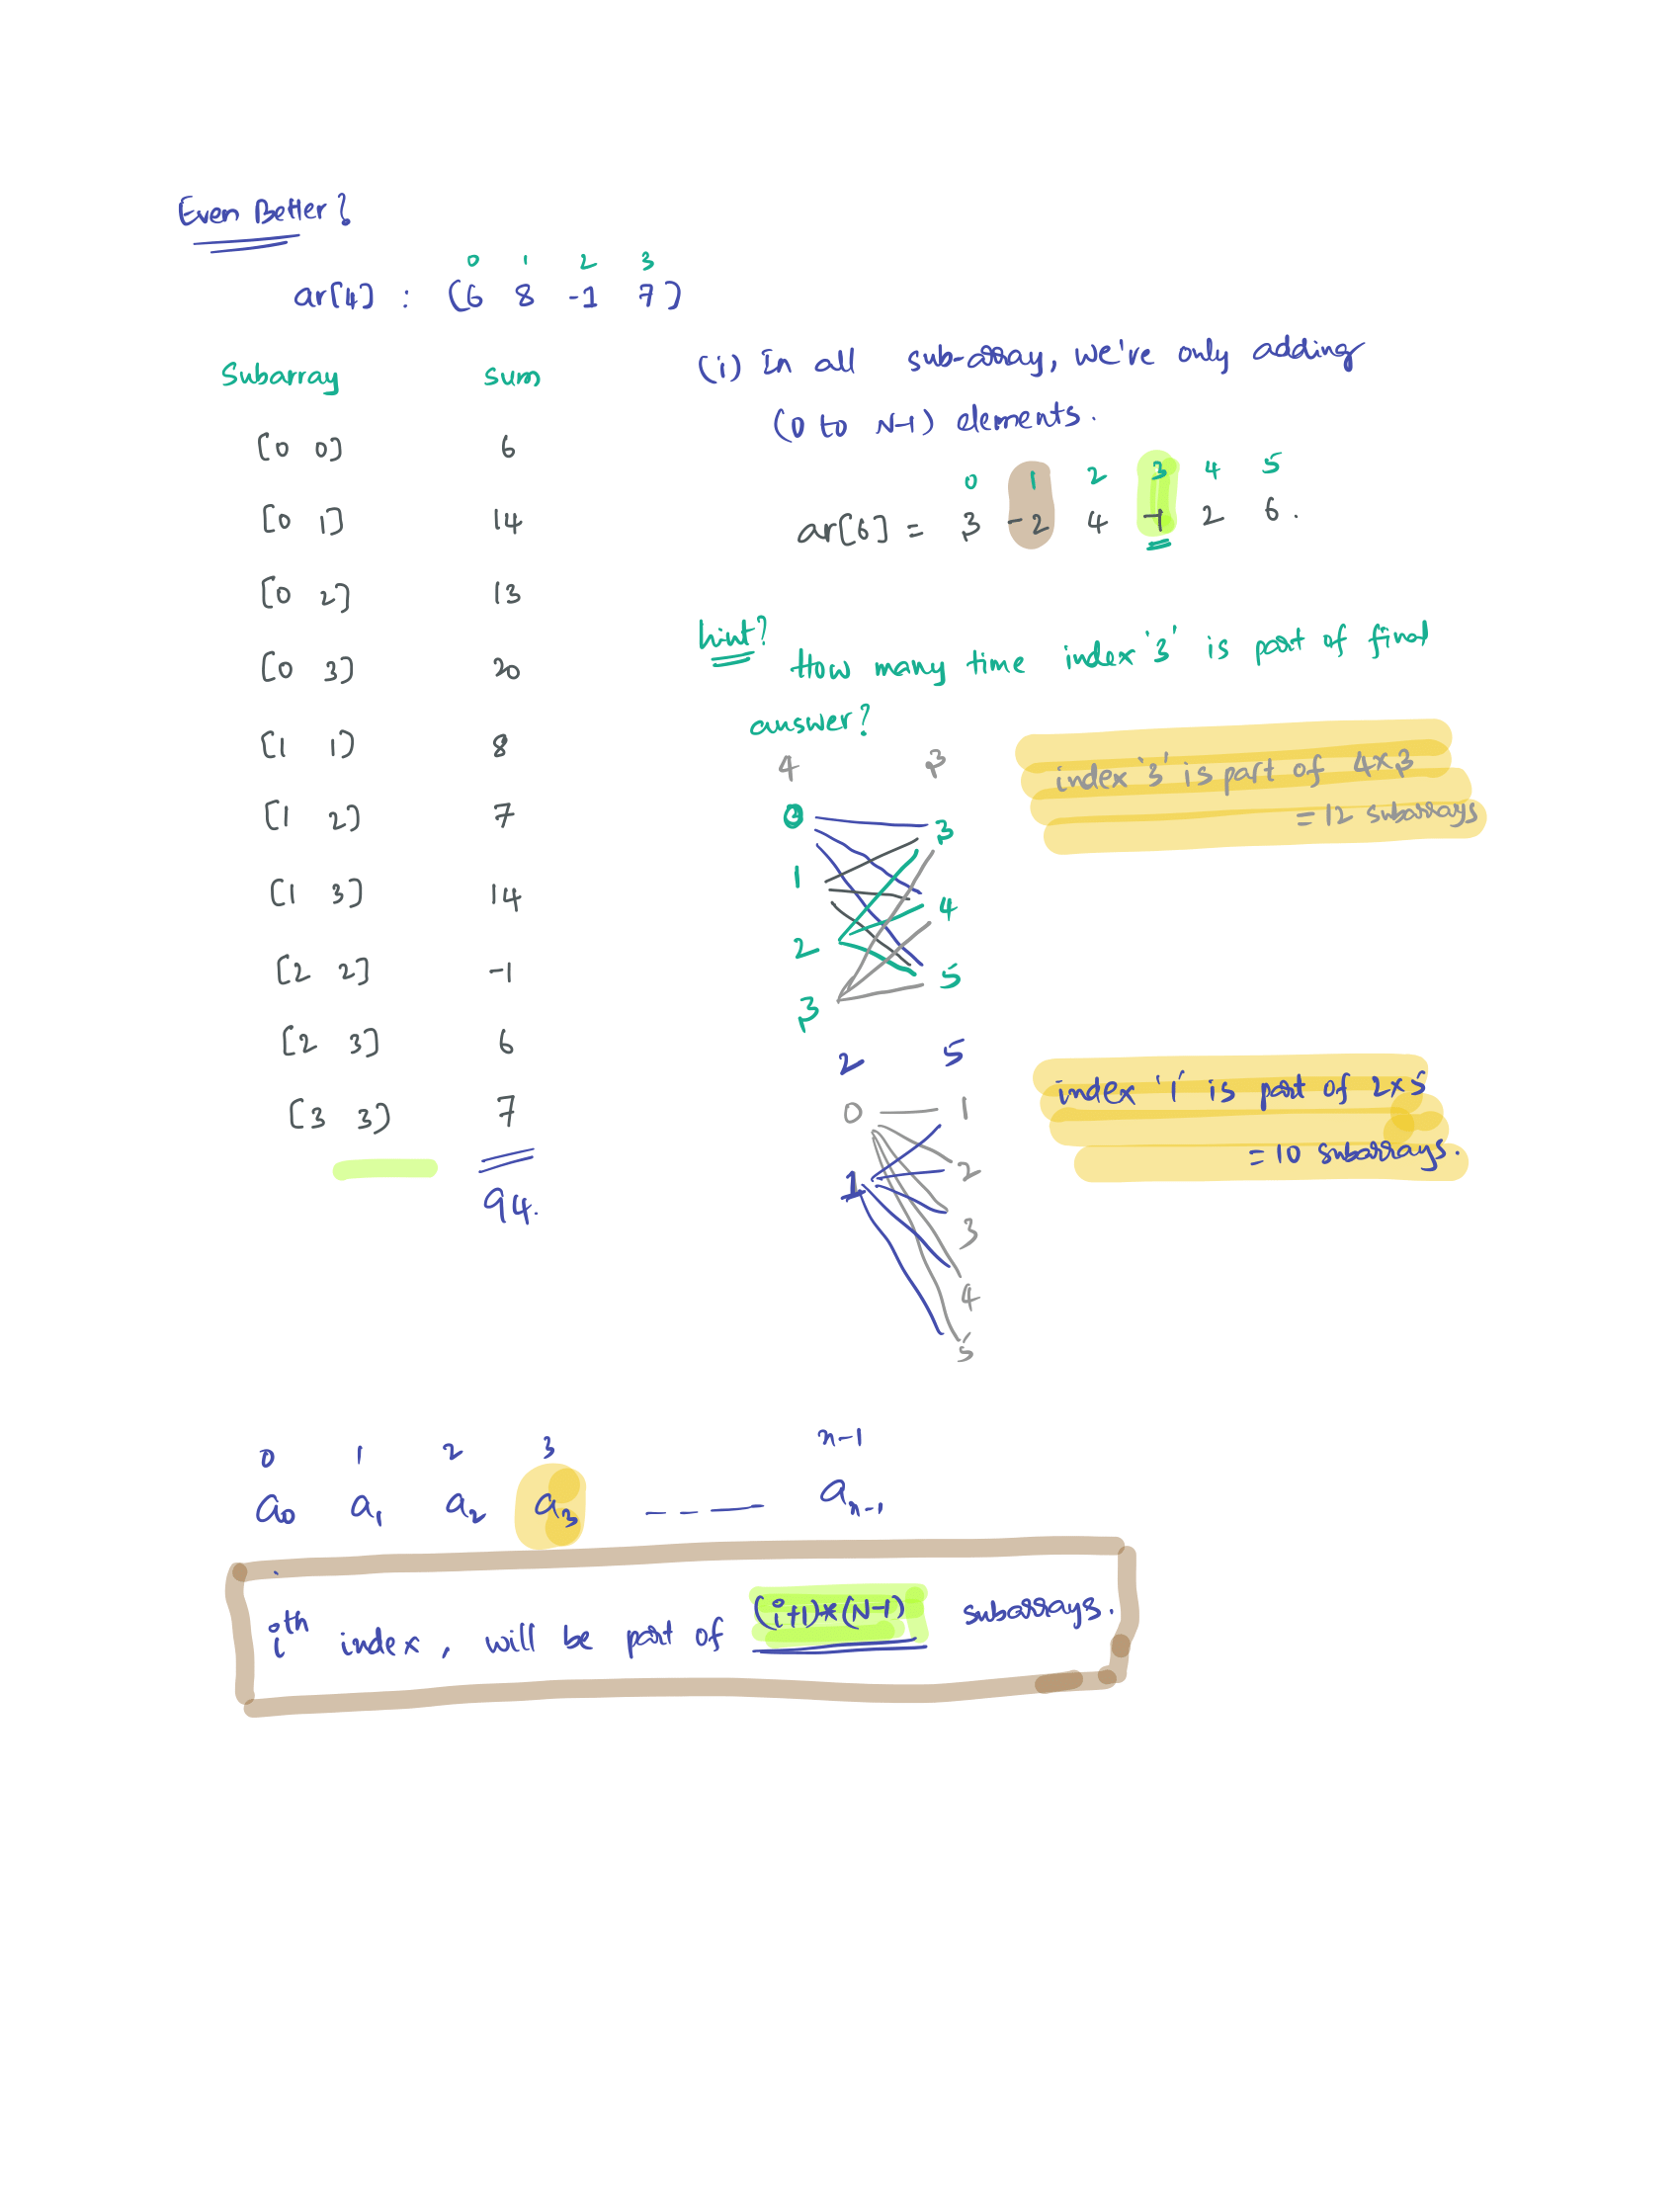 Even Better?
0 1 2 3
ar[4] : (6 8 -1 7)
Subarray sum
[0 0] 6
[0 1] 14
[0 2] 13
[0 3] 20
[1 1] 8
[1 2] 7
[1 3] 14
[2 2] -1
[2 3] 6
[3 3] 7
94.
(i) In all sub-array, we've only adding
(0 to N-1) elements.
0 1 2 3 4 5
ar[6] = 3 -2 4 -1 2 6.
hint?
How many time index '3' is part of final
answer?
4 3
0 3
1 4
2 5
3
index '3' is part of 4x3
= 12 subarrays
2 5
0 1
1 2
3
4
5
index '1' is part of 2x5
= 10 subarrays.
0 1 2 3 n-1
a0 a1 a2 a3 ----- an-1
ith index, will be part of (i+1)*(N-1) subarrays.